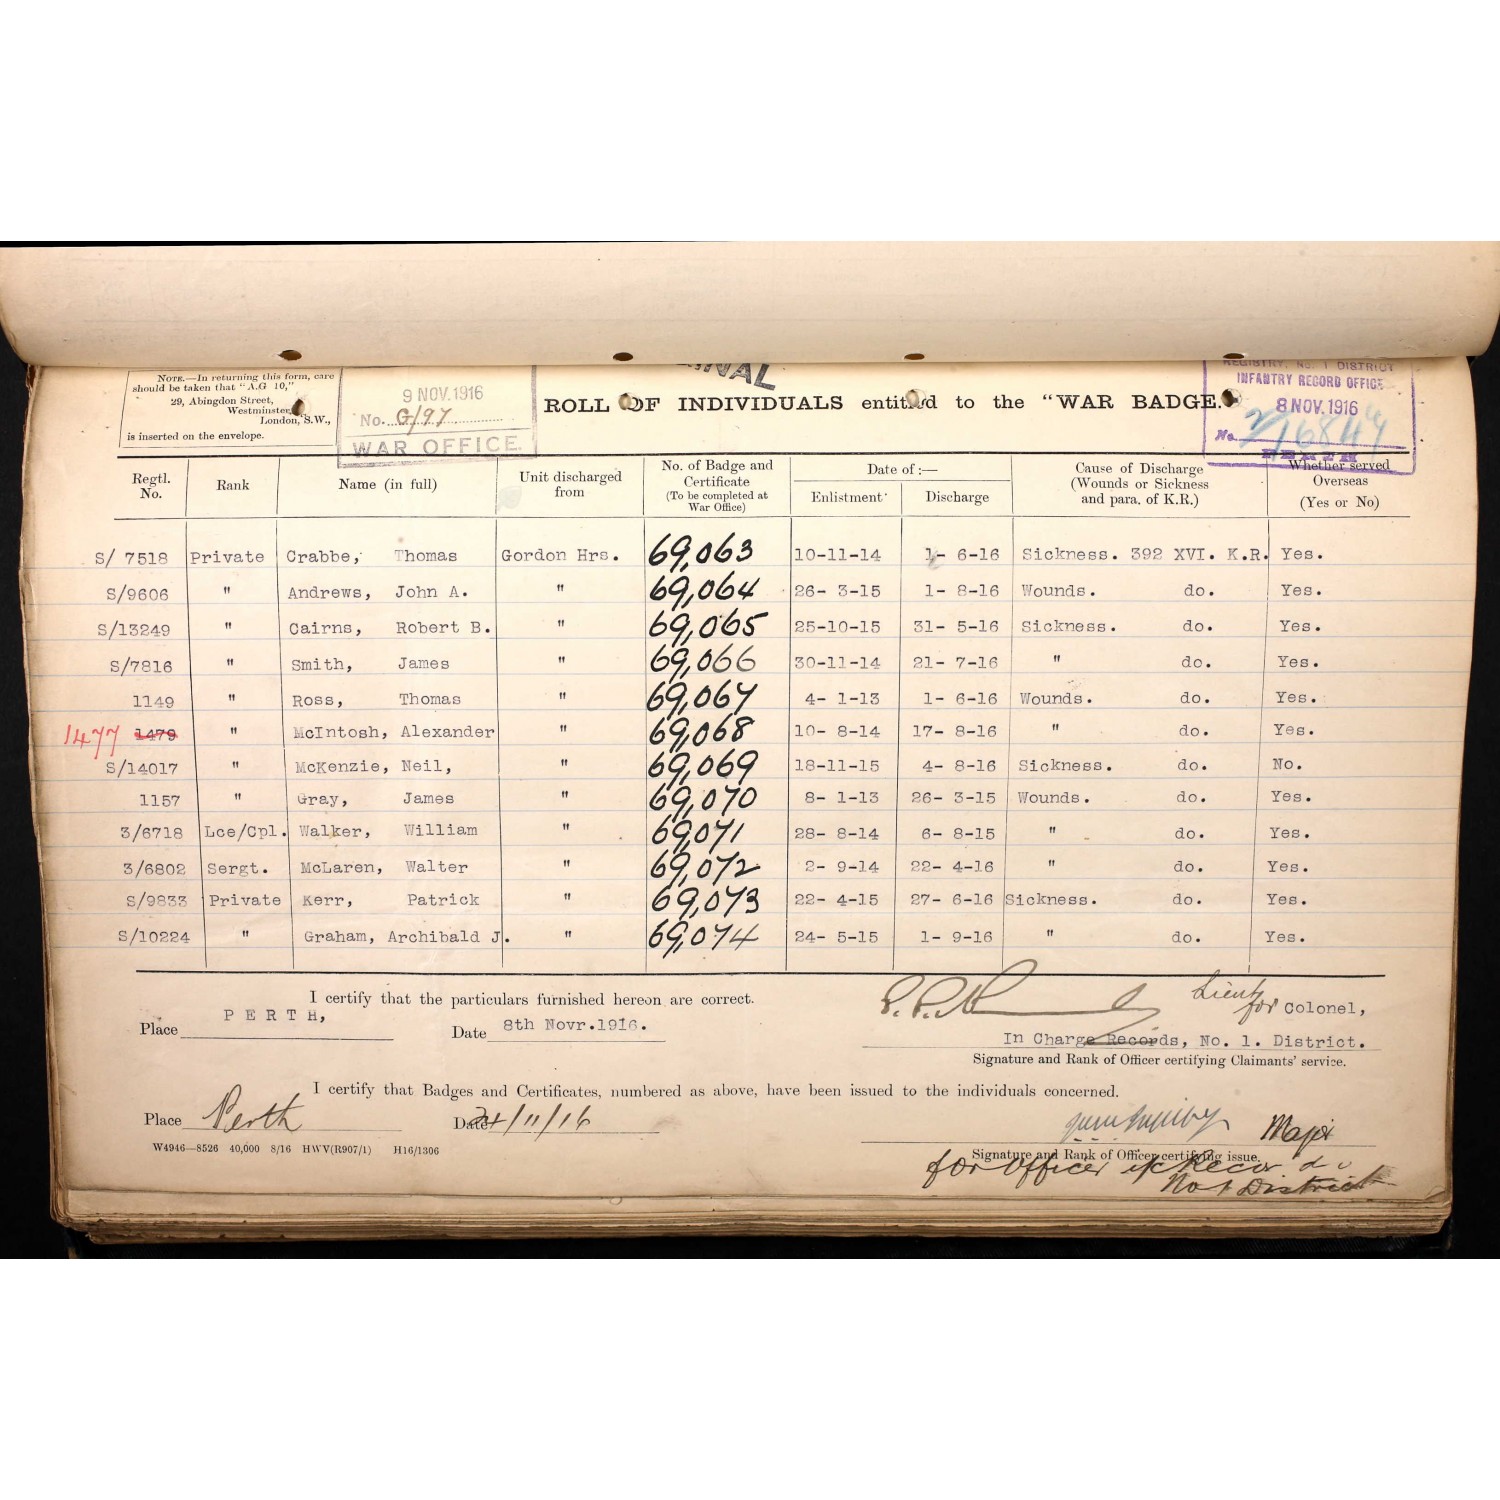 NOTE.—In returning this form, care
should be taken that "A.G 10,"
29, Abingdon Street,
Westminster,
London, S.W.,
is inserted on the envelope.
9 NOV. 1916
No. G/97
WAR OFFICE.
ROLL OF INDIVIDUALS entitled to the "WAR BADGE."
REGISTRY, No. 1 DISTRICT
INFANTRY RECORD OFFICE
8 NOV. 1916
No.
PERTH
Regtl. No. Rank Name (in full) Unit discharged from No. of Badge and Certificate (To be completed at War Office) Date of:— Enlistment Discharge Cause of Discharge (Wounds or Sickness and para. of K.R.) Whether served Overseas (Yes or No)
S/ 7518 Private Crabbe, Thomas Gordon Hrs. 69,063 10-11-14 1- 6-16 Sickness. 392 XVI. K.R. Yes.
S/9606 " Andrews, John A. " 69,064 26- 3-15 1- 8-16 Wounds. do. Yes.
S/13249 " Cairns, Robert B. " 69,065 25-10-15 31- 5-16 Sickness. do. Yes.
S/7816 " Smith, James " 69,066 30-11-14 21- 7-16 " do. Yes.
1149 " Ross, Thomas " 69,067 4- 1-13 1- 6-16 Wounds. do. Yes.
1477 1479 " McIntosh, Alexander " 69,068 10- 8-14 17- 8-16 " do. Yes.
S/14017 " McKenzie, Neil, " 69,069 18-11-15 4- 8-16 Sickness. do. No.
1157 " Gray, James " 69,070 8- 1-13 26- 3-15 Wounds. do. Yes.
3/6718 Lce/Cpl. Walker, William " 69,071 28- 8-14 6- 8-15 " do. Yes.
3/6802 Sergt. McLaren, Walter " 69,072 2- 9-14 22- 4-16 " do. Yes.
S/9833 Private Kerr, Patrick " 69,073 22- 4-15 27- 6-16 Sickness. do. Yes.
S/10224 " Graham, Archibald J. " 69,074 24- 5-15 1- 9-16 " do. Yes.
I certify that the particulars furnished hereon are correct.
Lieut
for Colonel,
Place PERTH, Date 8th Novr.1916.
In Charge Records, No. 1. District.
Signature and Rank of Officer certifying Claimants' service.
I certify that Badges and Certificates, numbered as above, have been issued to the individuals concerned.
Place Perth Date 24/11/16
Major
W4946—8526 40,000 8/16 HWV(R907/1) H16/1306
Signature and Rank of Officer certifying issue.
for Officer i/c Records
No 1 District